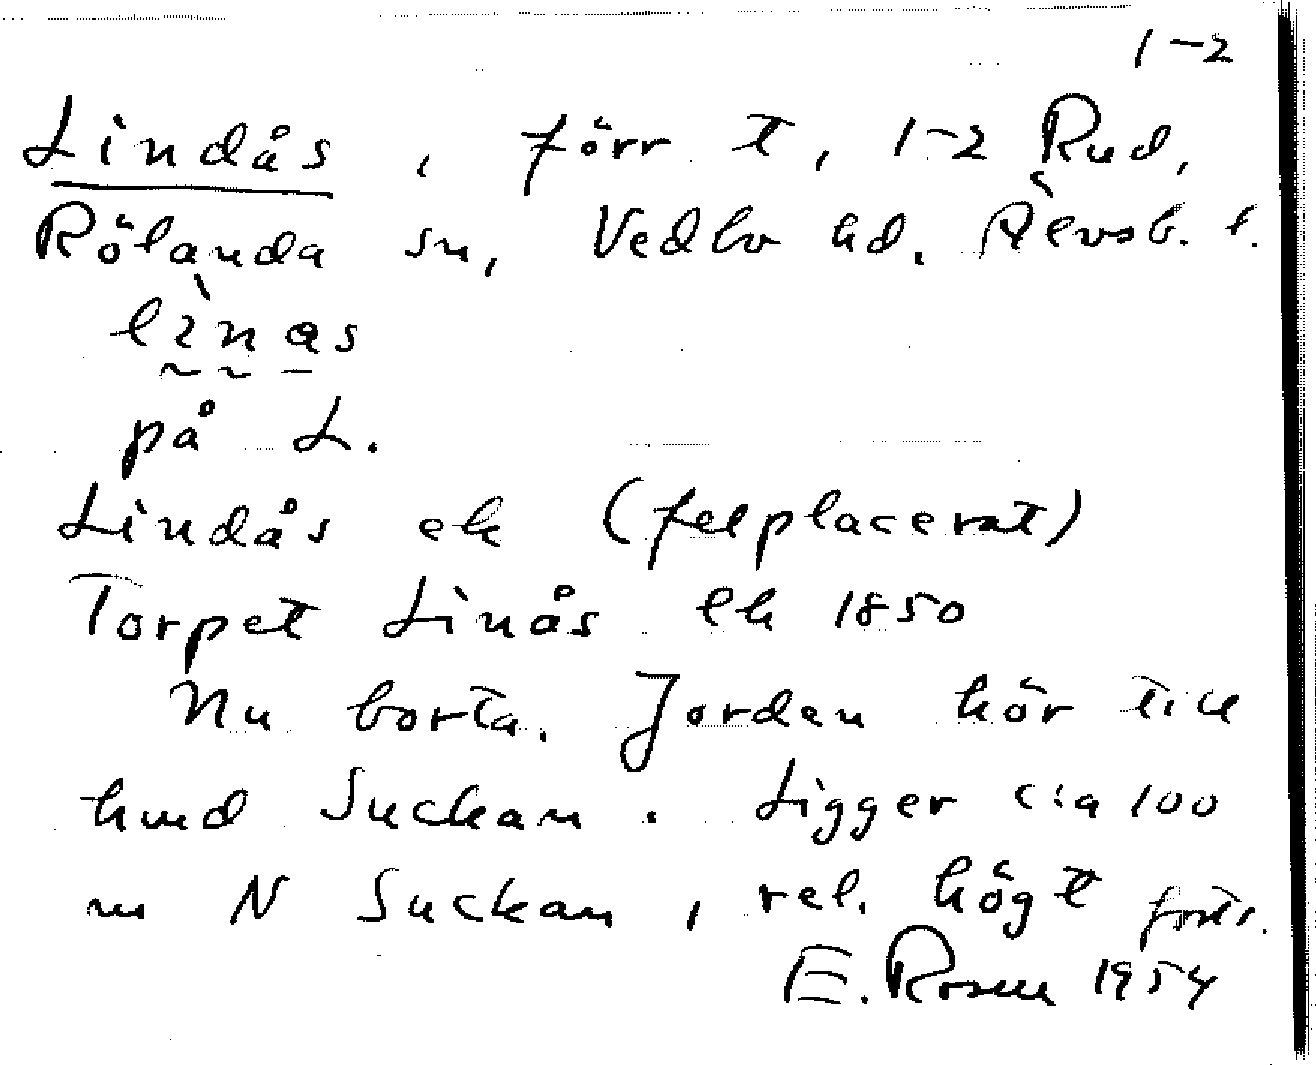 1-2
Lindås, förr t, 1-2 Rud,
Rölanda sn, Vedbo hd. Älvsb. l.
lìnas
på L.
Lindås ek (felplacerat)
Torpet Linås ek 1850
Nu borta. Jorden hör till
hmd Suckan. Ligger c:a 100
m N Suckan, rel. högt forts.
E. Rosell 1954